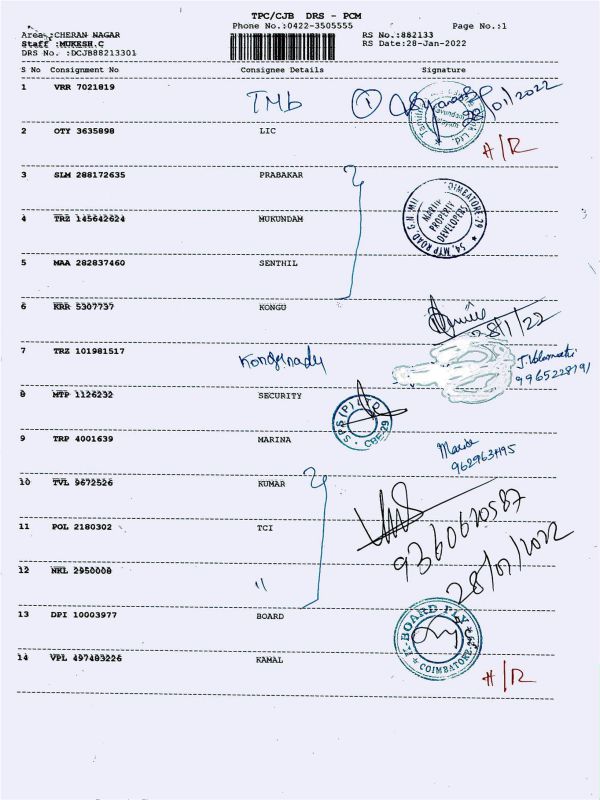 TPC/CJB DRS - PCM
Phone No.:0422-3505555 Page No.:1
Area :CHERAN NAGAR RS No.:882133
Staff :MUKESH.C RS Date:28-Jan-2022
DRS No. :DCJB88213301
S No Consignment No Consignee Details Signature
1 VRR 7021819 TMb 1 28/01/2022
2 OTY 3635898 LIC
#/R
3 SLM 288172635 PRABAKAR
MARUTI PROPERTY DEVELOPERS 54, MTP ROAD, G.N. COIMBATORE-29
4 TRZ 145642624 MUKUNDAM
5 MAA 282837460 SENTHIL
6 KRR 5307737 KONGU
28/1/22
7 TRZ 101981517 Kongunadu
9965228791
8 MTP 1126232 SECURITY
SPS (P) LTD CBE-29
9 TRP 4001639 MARINA
10 TVL 9672526 KUMAR
11 POL 2180302 TCI
9360610587
12 NKL 2950008 "
28/01/2022
13 DPI 10003977 BOARD
K-BOARD PLY COIMBATORE
14 VPL 497483226 KAMAL
#/R